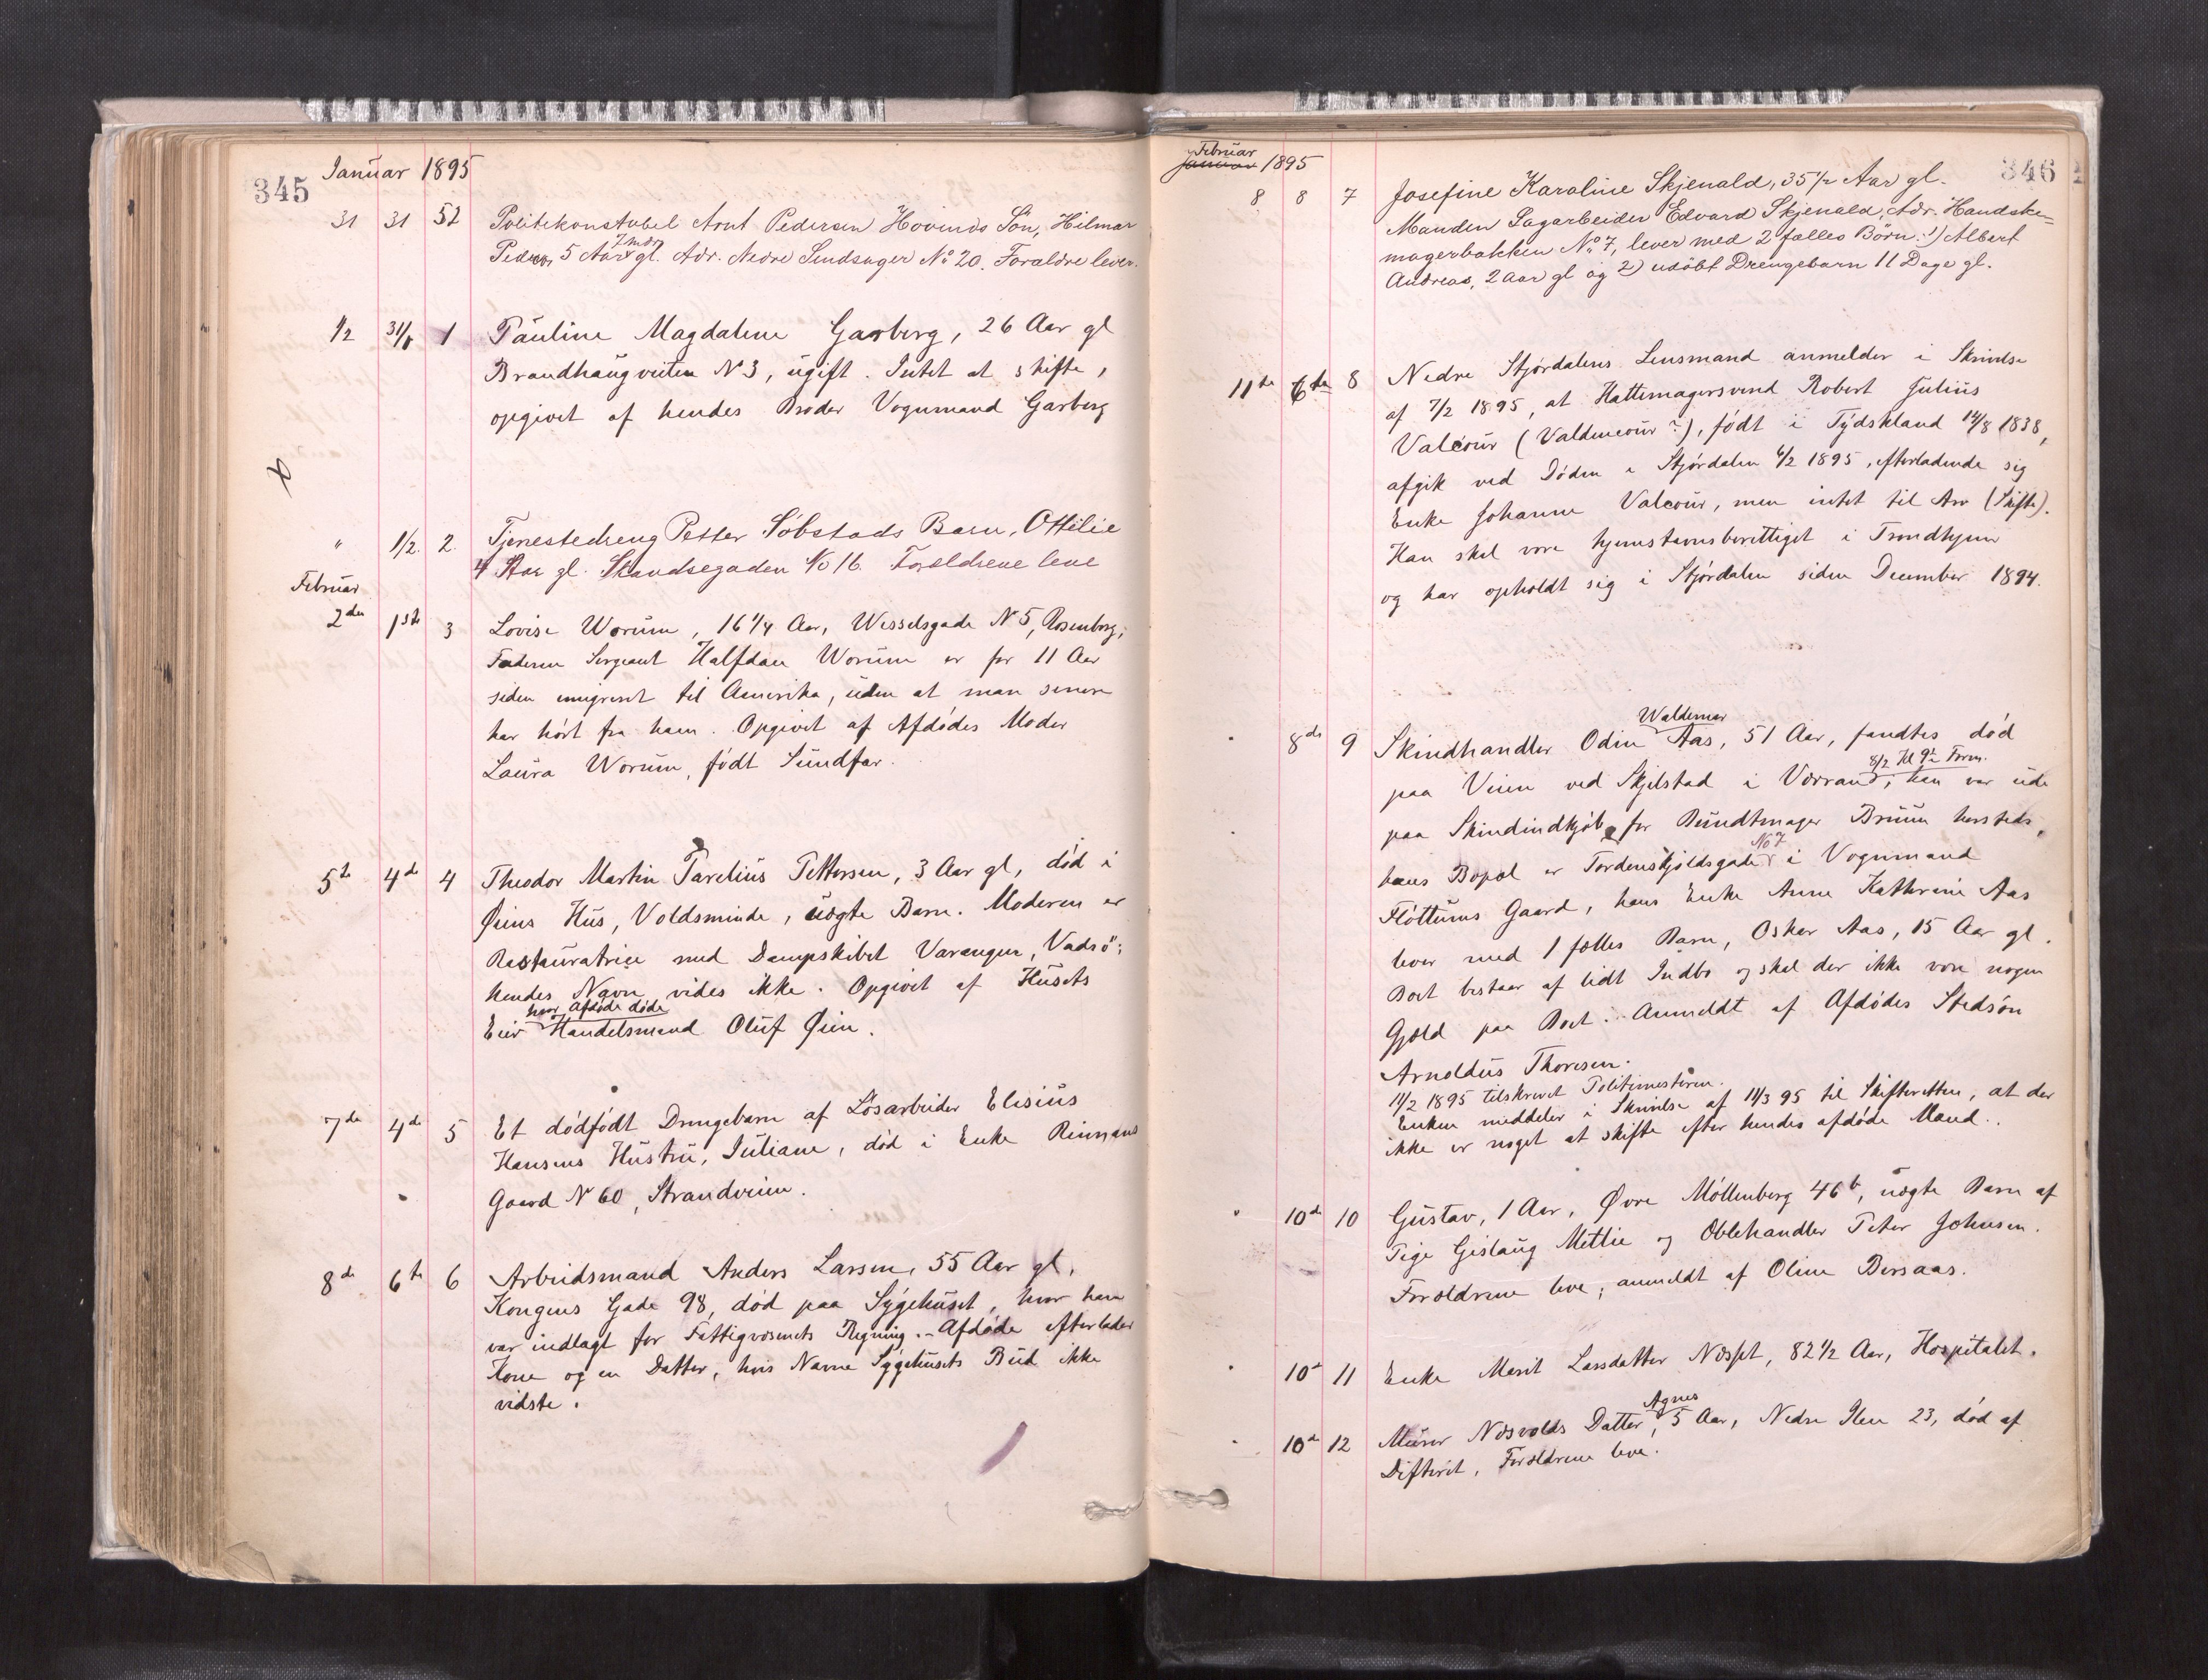 345
Januar 1895
31 31 52 Politikonstabel Arnt Pedersen Hovinds Sön, Hilmar
7 mdr
Peder 5 Aar gl. Adr. Nedre Sindsager No 20. Forældre lever.
1/2 31/1 1 Pauline Magdalene Garberg, 26 Aar gl
Brandhaugveiten N 3, ugift. Intet at skifte,
opgivet af hendes Broder Vognmand Garberg
" 1/2. 2. Tjenestedreng Petter Söbstads Barn, Ottilie
4 Aar gl. Skandsegaden No 16. Forældrene leve
Februar
2den 1ste 3 Lovise Worum, 16 1/4 Aar, Wesselsgade N 5, Rosenborg;
Faderen Sergeant Halfdan Worum er for 11 Aar
siden emigreret til Amerika, uden at man senere
har hört fra ham. Opgivet af Afdødes Moder
Laura Worum, födt Sundfær.
5te 4de 4 Theodor Martin Parelius Pettersen, 3 Aar gl, död i
Øiens Hus, Voldsminde, uægte Barn. Moderen er
Restauratrice med Dampskibet Varangen, Vadsö;
hendes Navn vides ikke. Opgivet af Husets
hvor Afdøde døde
Eier Handelsmand Oluf Øien.
7de 4de 5 Et dödfödt Drengebarn af Lösarbeider Elisius
Hansens Hustru, Juliane, död i Enke Rinnans
Gaard N 60, Strandveien.
8de 6te 6 Arbeidsmand Anders Larsen, 55 Aar gl,
Kongens Gade 98, død paa Sygehuset, hvor han
var indlagt for Fattigvæsenets Regning. - Afdøde efterlader
Kone og en Datter, hvis Navne Sygehusets Bud ikke
vidste.
346
Februar
Januar 1895
8 8 7 Josefine Karoline Skjenald, 35 1/2 Aar gl.
Manden Sagarbeider Edvard Skjenald, Adr. Handske-
magerbakken No 7, lever med 2 fælles Börn: 1) Albert
Andreas, 2 Aar gl og 2) udöbt Drengebarn 11 Dage gl.
11te 6te 8 Nedre Stjørdalens Lensmand anmelder i Skrivelse
af 7/2 1895, at Hattemagersvend Robert Julius
Valcour (Valdencour?), født i Tydskland 14/8 1838,
afgik ved Døden i Stjørdalen 6/2 1895, efterladende sig
Enke Johanne Valcour, men intet til Arv (Skifte).
Han skal være hjemstavnsberettiget i Trondhjem
og har opholdt sig i Stjørdalen siden December 1894.
Waldemar
8de 9 Skindhandler Odin Aas, 51 Aar, fandtes død
8/2 Kl 9 1/2 Form.
paa Veien ved Skjelstad i Værran; han var ude
paa Skindindkjøb for Bundtmager Bruun hersteds,
No 7
hans Bopæl er Tordenskjoldsgade i Vognmand
Fløttums Gaard, hans Enke Anne Kathrine Aas
lever med 1 fælles Barn, Oskar Aas, 15 Aar gl.
Boet bestaar af lidt Indbo og skal der ikke være nogen
Gjæld paa Boet. Anmeldt af Afdødes Stedsøn
Arnoldus Thoresen.
11/2 1895 tilskrevet Politimesteren.
Enken meddeler i Skrivelse af 11/3 95 til Skifteretten, at der
ikke er noget at skifte efter hendes afdøde Mand.
10de 10 Gustav, 1 Aar, Øvre Möllenberg 46 b, uægte Barn af
Pige Gislaug Mettie og Oblehandler Peter Johnsen.
Forældrene leve; anmeldt af Oline Bersaas.
10de 11 Enke Marit Larsdatter Næsset, 82 1/2 Aar, Hospitalet.
Agnes
10de 12 Murer Næsvolds Datter, 5 Aar, Nedre Ilen 23, død af
Difterit, Forældrene leve.